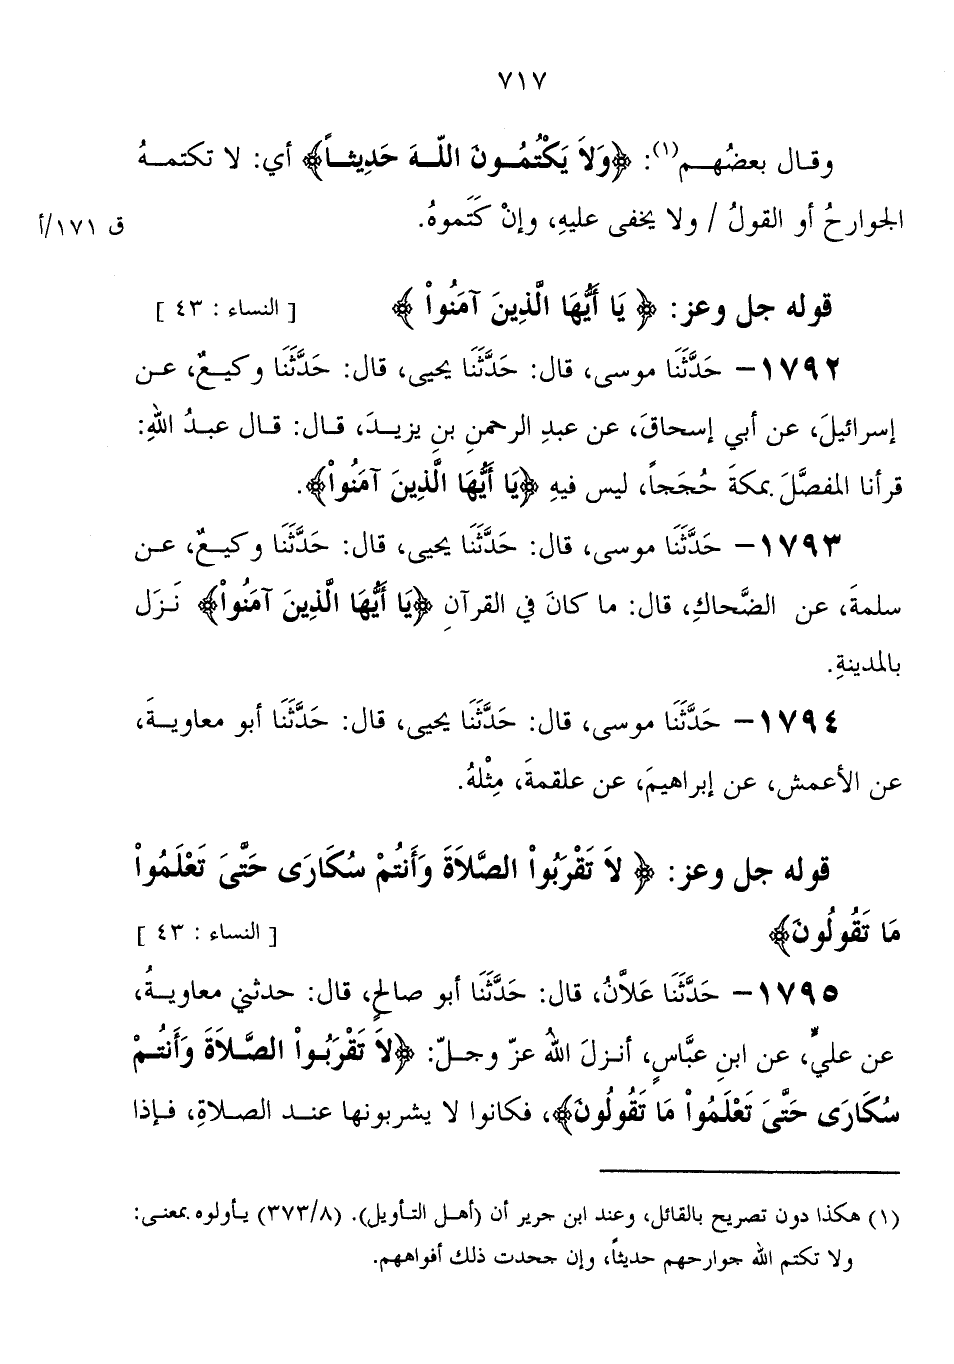 ٧١٧
وقـال بعضُهـم(١): ﴿وَلاَ يَكْتُمُـونَ اللّـهَ حَدِيثـاً﴾ أي: لا تكتمـهُ
الجوارحُ أو القولُ / ولا يخفى عليهِ، وإنْ كَتَموهُ.
ق ١٧١/أ
قوله جل وعز: ﴿ يَا أَيُّهَا الَّذِينَ آمَنُواْ ﴾ [ النساء : ٤٣ ]
١٧٩٢- حَدَّثَنَا موسى، قال: حَدَّثَنَا يحيى، قال: حَدَّثَنَا وكيـعٌ، عـن
إسرائيلَ، عن أبي إسحاقَ، عن عبدِ الرحمنِ بنِ يزيـدَ، قـال: قـال عبـدُ اللهِ:
قرأنا المفصَّلَ بمكةَ حُجَجاً، ليس فيهِ ﴿يَا أَيُّهَا الَّذِينَ آمَنُواْ﴾.
١٧٩٣- حَدَّثَنَا موسى، قال: حَدَّثَنَا يحيى، قال: حَدَّثَنَا وكيـعٌ، عـن
سلمةَ، عن الضَّحاكِ، قال: ما كانَ في القرآنِ ﴿يَا أَيُّهَا الَّذِينَ آمَنُواْ﴾ نَـزَل
بالمدينةِ.
١٧٩٤- حَدَّثَنَا موسى، قال: حَدَّثَنَا يحيى، قال: حَدَّثَنَا أبو معاويـةَ،
عن الأعمش، عن إبراهيمَ، عن علقمةَ، مِثْلهُ.
قوله جل وعز: ﴿ لاَ تَقْرَبُواْ الصَّلاَةَ وَأَنتُمْ سُكَارَى حَتَّىَ تَعْلَمُواْ
مَا تَقُولُونَ﴾ [ النساء : ٤٣ ]
١٧٩٥- حَدَّثَنَا عَلاَّنُ، قال: حَدَّثَنَا أبو صالحٍ، قال: حدثني معاويـةُ،
عن عليٍّ، عن ابنِ عبَّاسٍ، أنـزلَ اللهُ عزّ وجـلّ: ﴿لاَ تَقْرَبُـواْ الصَّـلاَةَ وَأَنتُـمْ
سُكَارَى حَتَّىَ تَعْلَمُواْ مَا تَقُولُونَ﴾، فكانوا لا يشربونها عنـد الصـلاةِ، فـإذا
(١) هكذا دون تصريح بالقائل، وعند ابن جرير أن (أهـل التـأويل). (٣٧٣/٨) يـأولوه بمعنـى:
ولا تكتم الله جوارحهم حديثاً، وإن جحدت ذلك أفواههم.